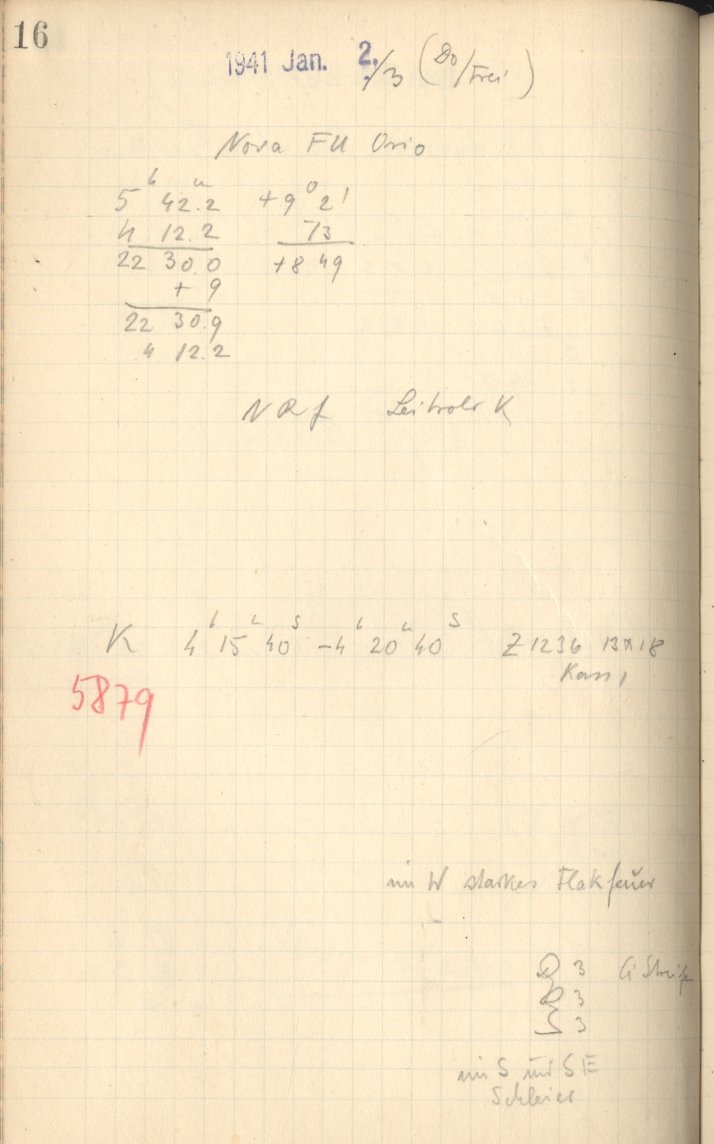 16
1941 Jan. 2./3 (Do/Frei)
Nova FU Orio
5ʰ 42.2ᵐ +9° 2'
4 12.2 13
22 30.0 +8 49
+ 9
22 30.9
4 12.2
NRf K
K 4ʰ 15ᵐ 40ˢ – 4ʰ 20ᵐ 40ˢ Z 1236 13×18
Kass 1
5879
im W starkes Flakfeuer
3 Ci Streife
3
S 3
im S und SE
Schleier